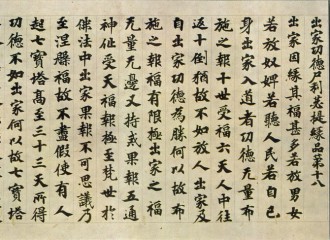 出家功德尸利苾提緣品第十八
出家因緣其福甚多若放男女
若放奴婢若聽人民若自己
身出家入道者功德无量布
施之報十世受福六天人中往
返十倒猶故不如放人出家及
自出家功德為勝何以故布
施之報福有限極出家之福
无量无邊又持戒果報五通
神仙受天福報極至梵世於
佛法中出家果報不可思議乃
至涅槃福故不盡假使有人
起七寶塔高至三十三天所得
功德不如出家何以故七寶塔